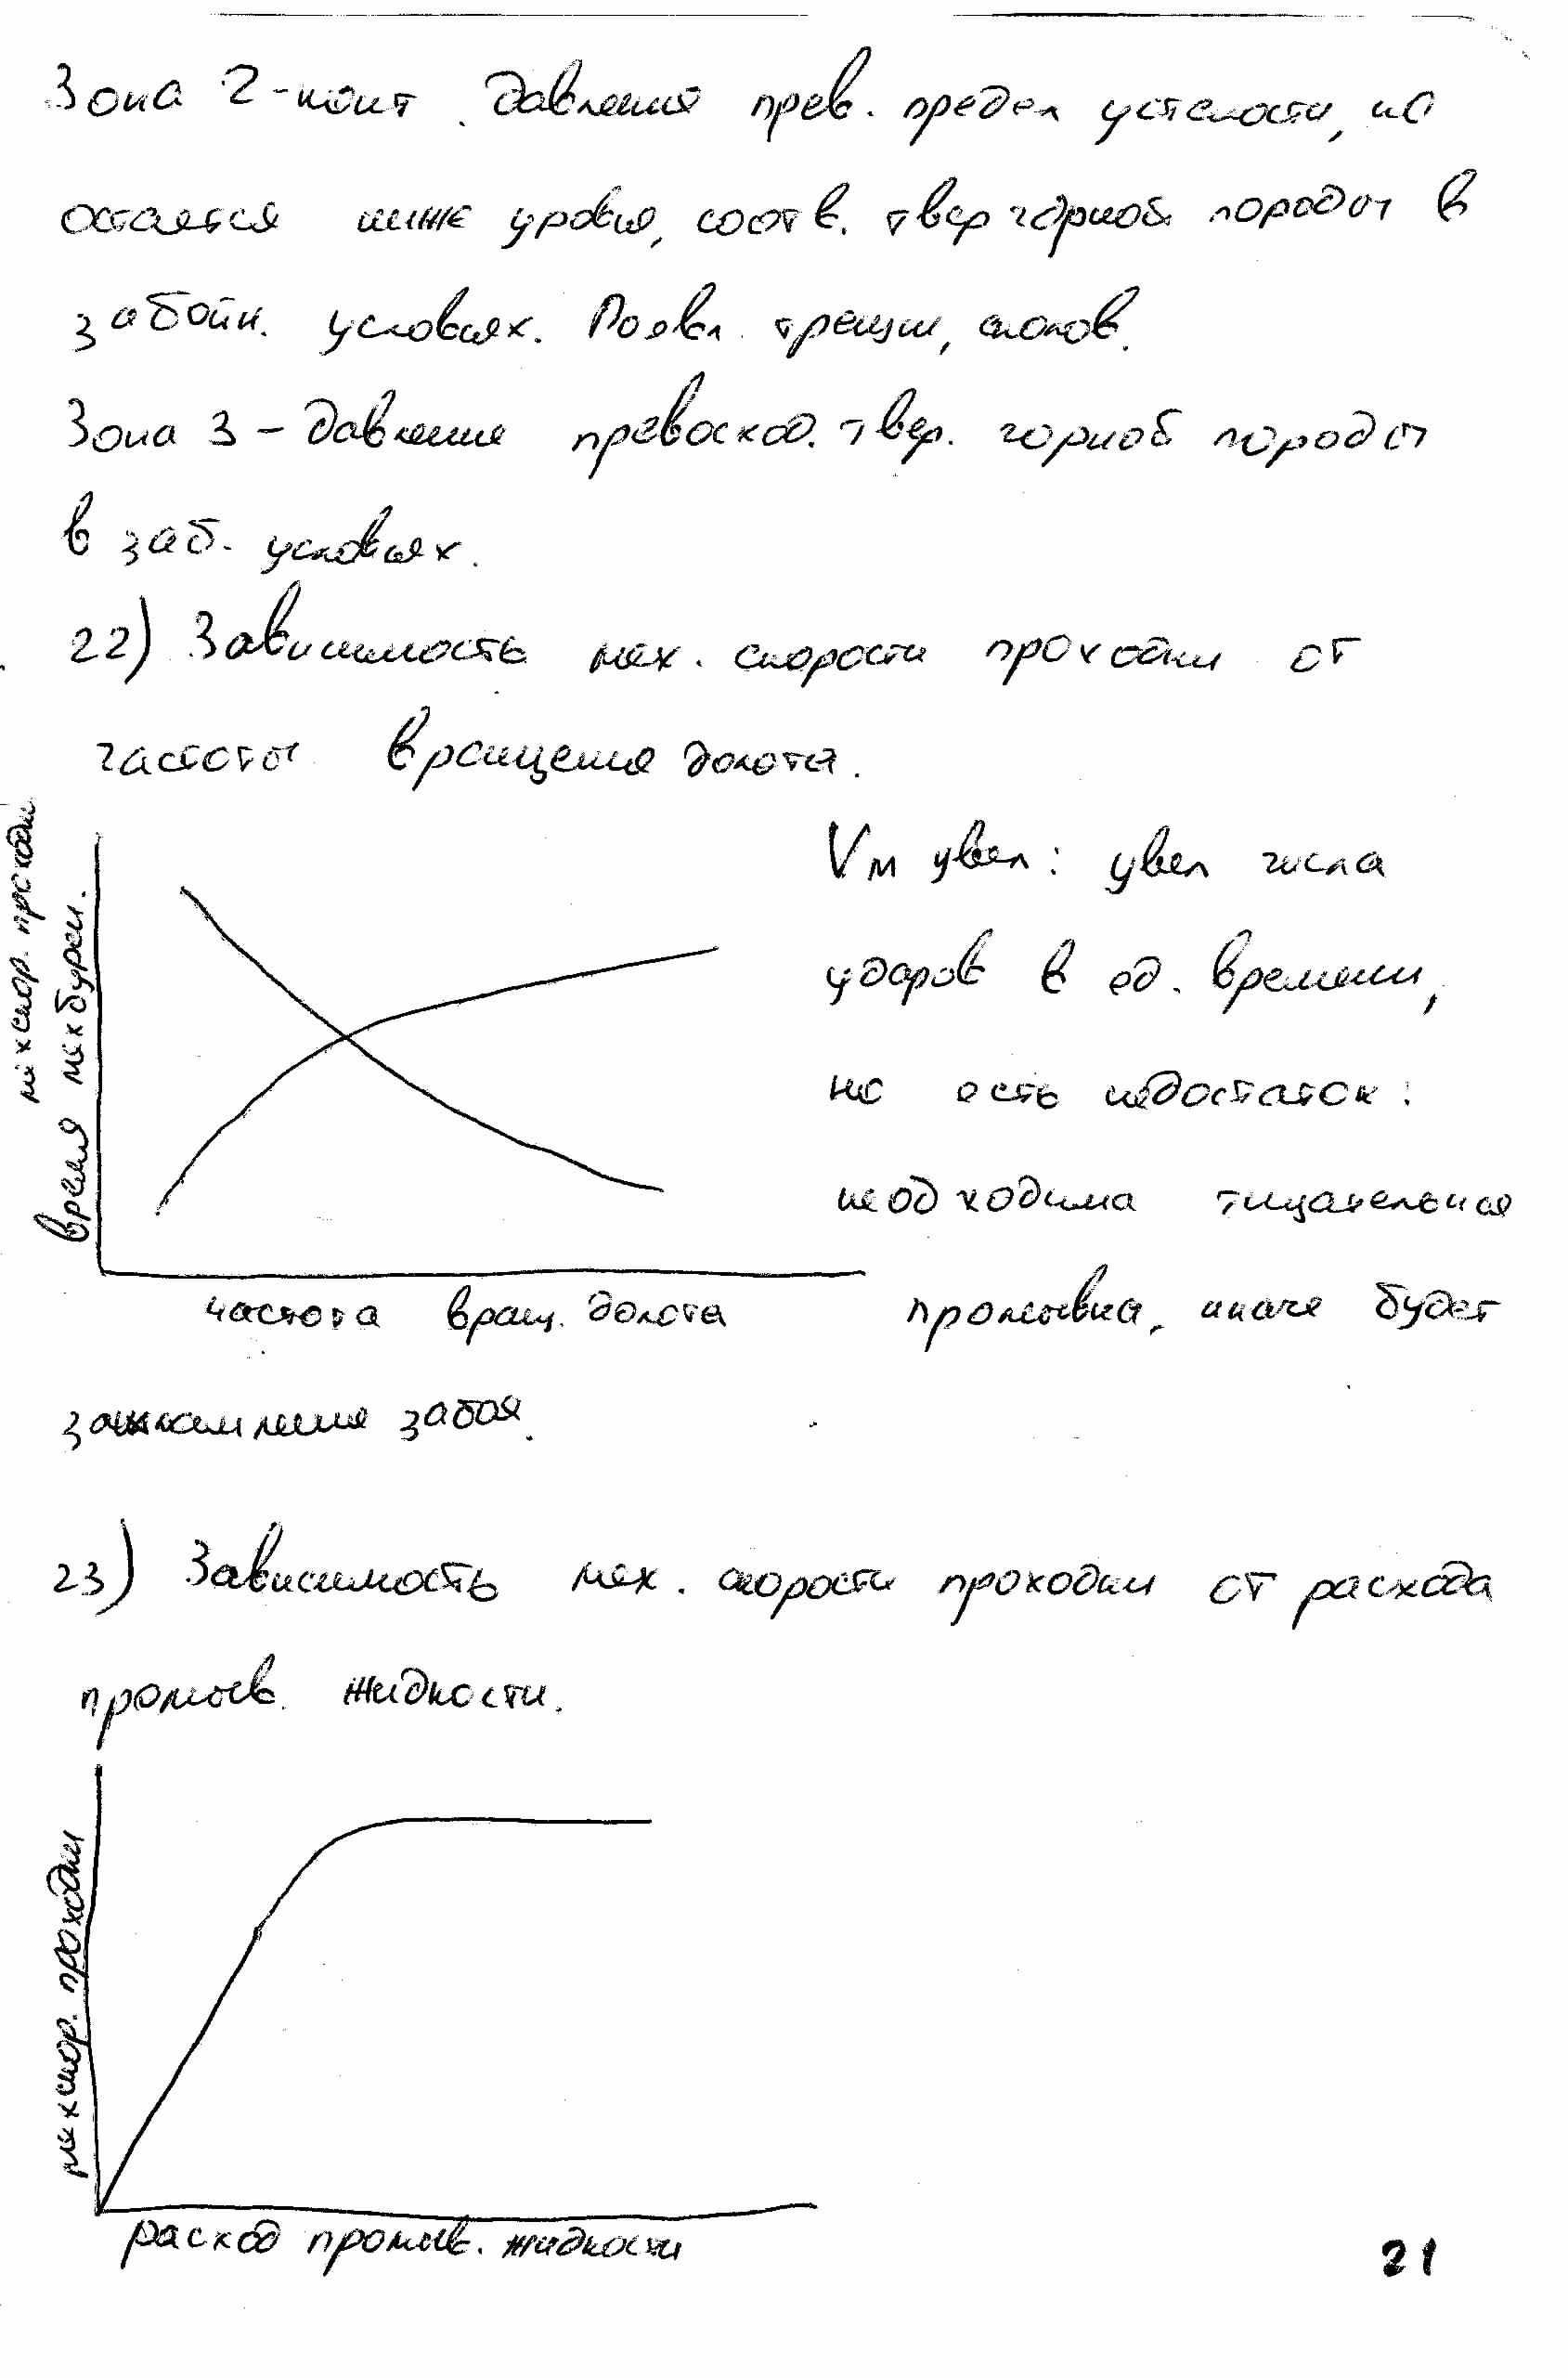 Зона 2 - конт. давления прев. предел усталости, но
остается ниже уровня, соотв. твер горной породы в
забойн. условиях. Появл. трещин, сколов.
Зона 3 - давление превосход. твер. горной породы
в заб. условиях.
22) Зависимость мех. скорости проходки от
частоты вращения долота.
мех скор. проходки
время мех бурен.
Vм увел: увел числа
ударов в ед. времени,
но есть недостаток:
необходима тщательная
частота вращ. долота
промывка, иначе будет
зашламления забоя.
23) Зависимость мех. скорости проходки от расхода
промыв. жидкости.
мех скор. проходки
расход промыв. жидкости
21